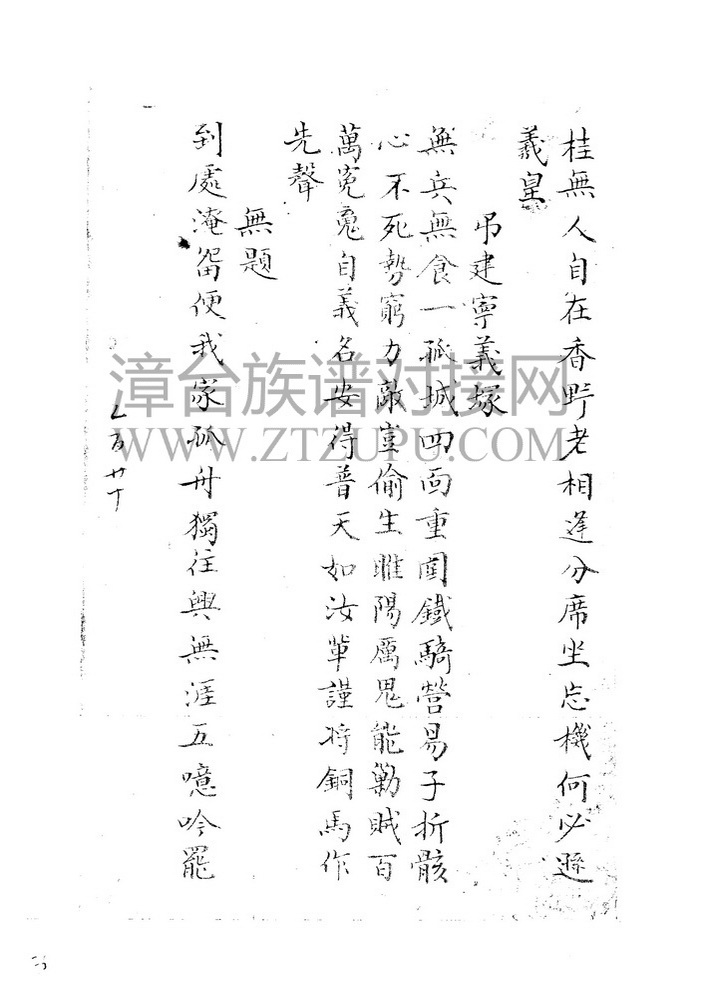 桂無人自在香野老相逢分席坐忘機何必遜
羲皇
弔建寧義塚
無兵無食一孤城四面重圍鐵騎營易子折骸
心不死勢窮力敵豈偷生睢陽厲鬼能勦賊百
萬冤鬼自義名安得普天如汝輩謹將銅馬作
先聲
無題
到處淹留便我家孤舟獨往興無涯五噫吟罷
漳台族谱对接网
WWW.ZTZUPU.COM